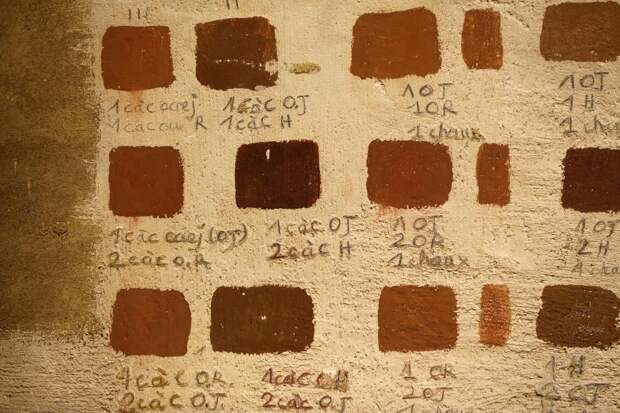 III
II
1 càc ocrej
1 càc ou R
1 càc O.J
1 càC H
1 OJ
1 OR
1 chaux
1 OJ
1 H
1 chau
1 càc ocrej (OJ)
2 càc O.R
1 càC OJ
2 càC H
1 OJ
2 OR
1 chaux
1 OJ
2 H
1 cha
1 càC O.R.
2 càC O.J.
1 càC H
2 càC O.J
1 OR
2 OJ
1 H
2 OJ